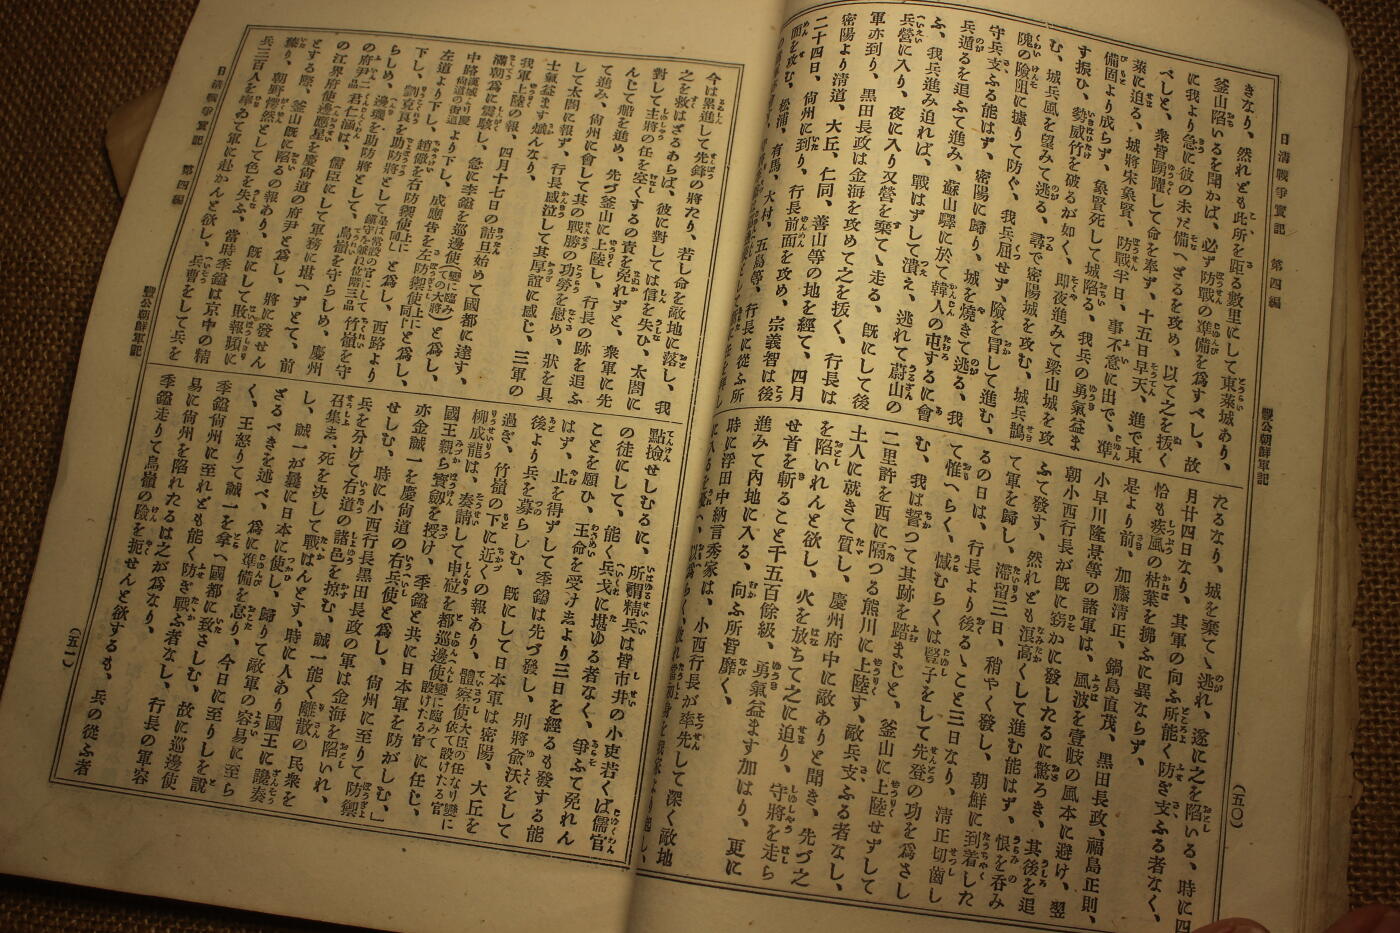 日淸戰爭實記 第四編
豐公朝鮮軍記
(五〇)
きなり、然れども此所を距る數里にして東萊城あり、
釜山陷いるを聞かば、必ず防戰の準備を爲すべし、故
に我より急に彼の未だ備へざるを攻め、以て之を拔く
べしと、衆皆踴躍して命を奉ず、十五日早天、進で東
萊に迫る、城將宋象賢、防戰半日、事不意に出で、準
備固より成らず、象賢死して城陷る、我兵の勇氣益ま
す振ひ、勢威竹を破るが如く、即夜進みて梁山城を攻
む、城兵風を望みて逃る、尋で密陽城を攻む、城兵鵲
の險阻に據りて防ぐ、我兵屈せず、險を冒して進む、
守兵支ふる能はず、密陽に歸り、城を燒きて逃る、我
兵遁るを追ふて進み、蘇山驛に於て韓人の屯するに會
ふ、我兵進み迫れば、戰はずして潰え、逃れて蔚山の
兵營に入り、夜に入り又營を棄てゝ走る、既にして後
軍亦到り、黑田長政は金海を攻めて之を拔く、行長は
密陽より淸道、大丘、仁同、善山等の地を經て、四月
二十四日、尙州に到り、行長前面を攻め、宗義智は後
面を攻む、松浦、有馬、大村、五島等、行長に從ふ所
たるなり、城を棄てゝ逃れ、遂に之を陷いる、時に四
月廿四日なり、其軍の向ふ所能く防ぎ支ふる者なく、
恰も疾風の枯葉を拂ふに異ならず、
是より前、加藤淸正、鍋島直茂、黑田長政、福島正則、
小早川隆景等の諸軍は、風波を壹岐の風本に避け、翌
朝小西行長が既に竊かに發したるに驚ろき、其後を追
ふて發す、然れども浪高くして進む能はず、恨を呑み
て軍を歸し、滯留三日、稍やく發し、朝鮮に到着した
るの日は、行長より後るゝこと三日なり、淸正切齒し
て惟へらく、憾むらくは豎子をして先登の功を爲さし
む、我は誓つて其跡を踏まじと、釜山に上陸せずして
二里許を西に隔つる熊川に上陸す、敵兵支ふる者なし、
土人に就きて質し、慶州府中に敵ありと聞き、先づ之
を陷いれんと欲し、火を放ちて之に迫り、守將を走ら
せ首を斬ること千五百餘級、勇氣益ます加はり、更に
進みて內地に入る、向ふ所皆靡く、
時に浮田中納言秀家は、小西行長が率先して深く敵地
日淸戰爭實記 第四編
豐公朝鮮軍記
(五一)
今は累進して先鋒の將たり、若し命を敵地に落し、我
之を救はざるあらば、彼に對しては信を失ひ、太閤に
對して主將の任を空くするの責を免れずと、衆軍に先
んじて船を進め、先づ釜山に上陸し、行長の跡を追ふ
て進み、尙州に會して其の戰勝の功勞を慰め、狀を具
して太閤に報ず、行長感泣して其厚誼に感じ、三軍の
士氣益ます熾んなり、
我軍上陸の報、四月十七日の詰旦始めて國都に達す、
滿朝爲に震駭し、急に李鎰を巡邊使(變に臨みての大將)と爲し、
中路より下し、成應吉を左防禦使に
左道より下し、趙儆を右防禦使上に同じと爲し、西路より
下し、劉克良を助防將として竹嶺を守
らしめ、邊璣を助防將として、鳥嶺を守らしめ、慶州
の府尹尹仁涵は、儒臣にして軍務に堪へずとて、前
の江界府使邊應星を慶州道の府尹と爲し、將に發せん
とする際、釜山既に陷るの報あり、既にして敗報頻に
臻り、朝野愕然として色を失ふ、當時李鎰は京中の精
兵三百人を率ゐて軍に赴かんと欲し、兵曹をして兵を
點檢せしむるに、所謂精兵は皆市井の小吏若くば儒官
の徒にして、能く兵戈に堪ゆる者なく、爭ふて免れん
ことを願ひ、王命を受けてより三日を經るも發する能
はず、止を得ずして李鎰は先づ發し、別將兪沃をして
後より兵を募らしむ、既にして日本軍は密陽、大丘を
過ぎ、竹嶺の下に近くの報あり、體察使大臣の任なり變に依て設けたる官
柳成龍は、奏請して申砬を都巡邊使變に臨みて設けたる官に任じ、
國王親ら寳劍を授け、李鎰と共に日本軍を防がしむ、
亦金誠一を慶尙道の右兵使と爲し、尙州に至りて防禦
せしむ、時に小西行長黑田長政の軍は金海を陷いれ、
兵を分けて右道の諸邑を掠む、誠一能く離散の民衆を
召集し、死を決して戰はんとす、時に人あり國王に讒奏
し、誠一が曩に日本に使し、歸りて敵軍の容易に至ら
ざるべきを述べ、爲に準備を怠り、今日に至りしを說
く、王怒りて誠一を拿へ國都に致さしむ、故に巡邊使
李鎰尙州に至れども能く防ぎ戰ふ者なし、行長の軍容
易に尙州を陷れたるは之が爲なり、
李鎰走りて鳥嶺の險を扼せんと欲するも、兵の從ふ者